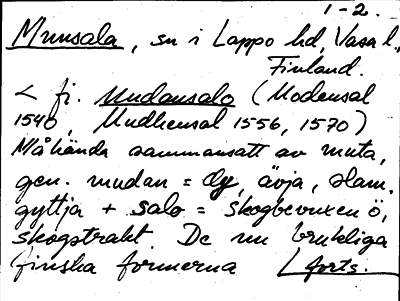 1-2.
Munsala, sn i Lappo hd, Vasa l.,
Finland.
< fi. Mudansalo (Modensal
1540, Mudhensal 1556, 1570)
Måhända sammansatt av muta,
gen. mudan = dy, ävja, slam,
gyttja + salo = skogbevuxen ö,
skogstrakt. De nu brukliga
finska formerna forts.